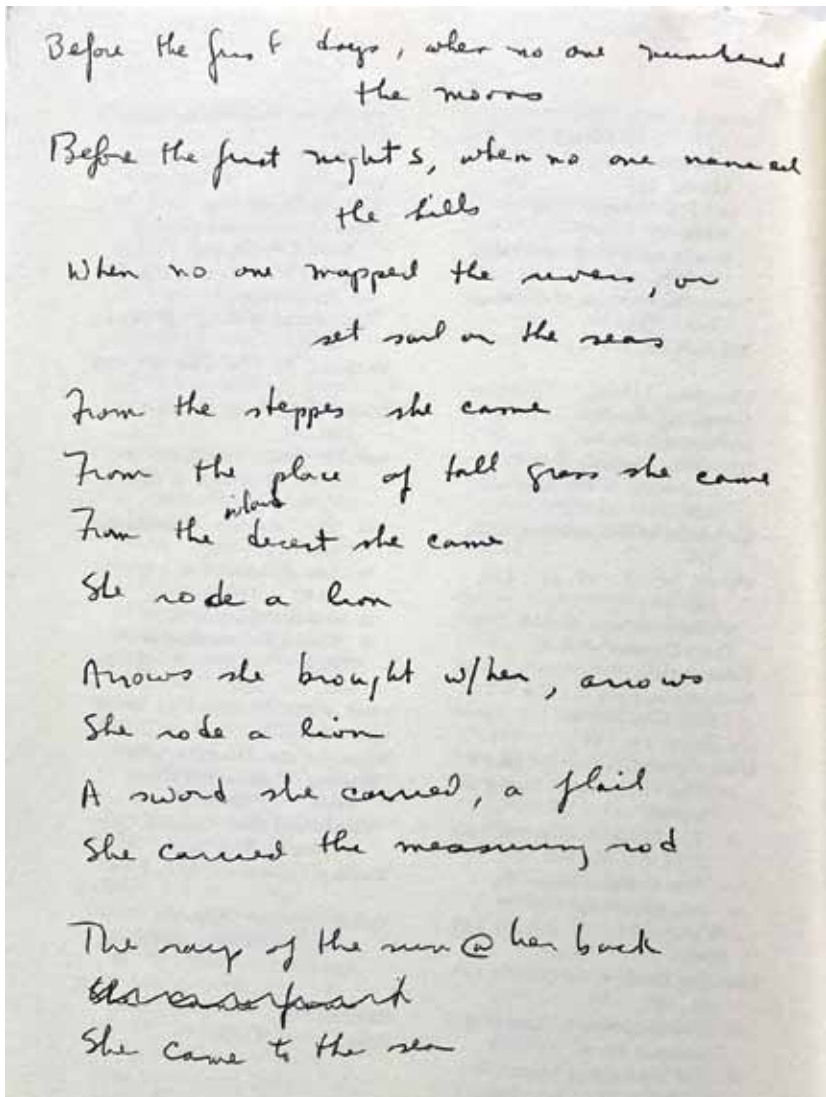 Before the first days, when no one numbered
the moons
Before the first nights, when no one named
the hills
When no one mapped the rivers, or
set sail on the seas
From the steppes she came
From the place of tall grass she came
inland
From the desert she came
She rode a lion
Arrows she brought w/her, arrows
She rode a lion
A sword she carried, a flail
She carried the measuring rod
The rays of the sun @ her back
She came to the sea